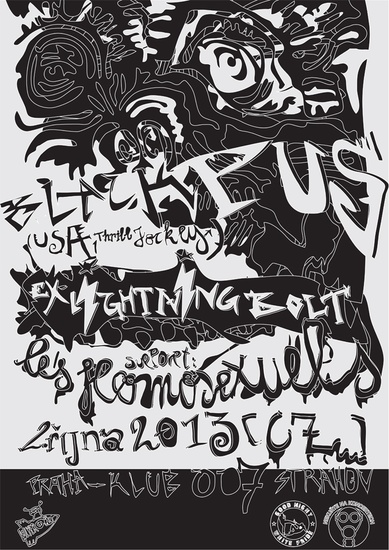 BLACK PUS
(USA, Thrill Jockey)
EX LIGHTNING BOLT
suport:
les Homosexuels
2 října 2013 (CZ)
PRAHA - KLUB 007 STRAHOV
GOOD NIGHT
WHITE PRIDE